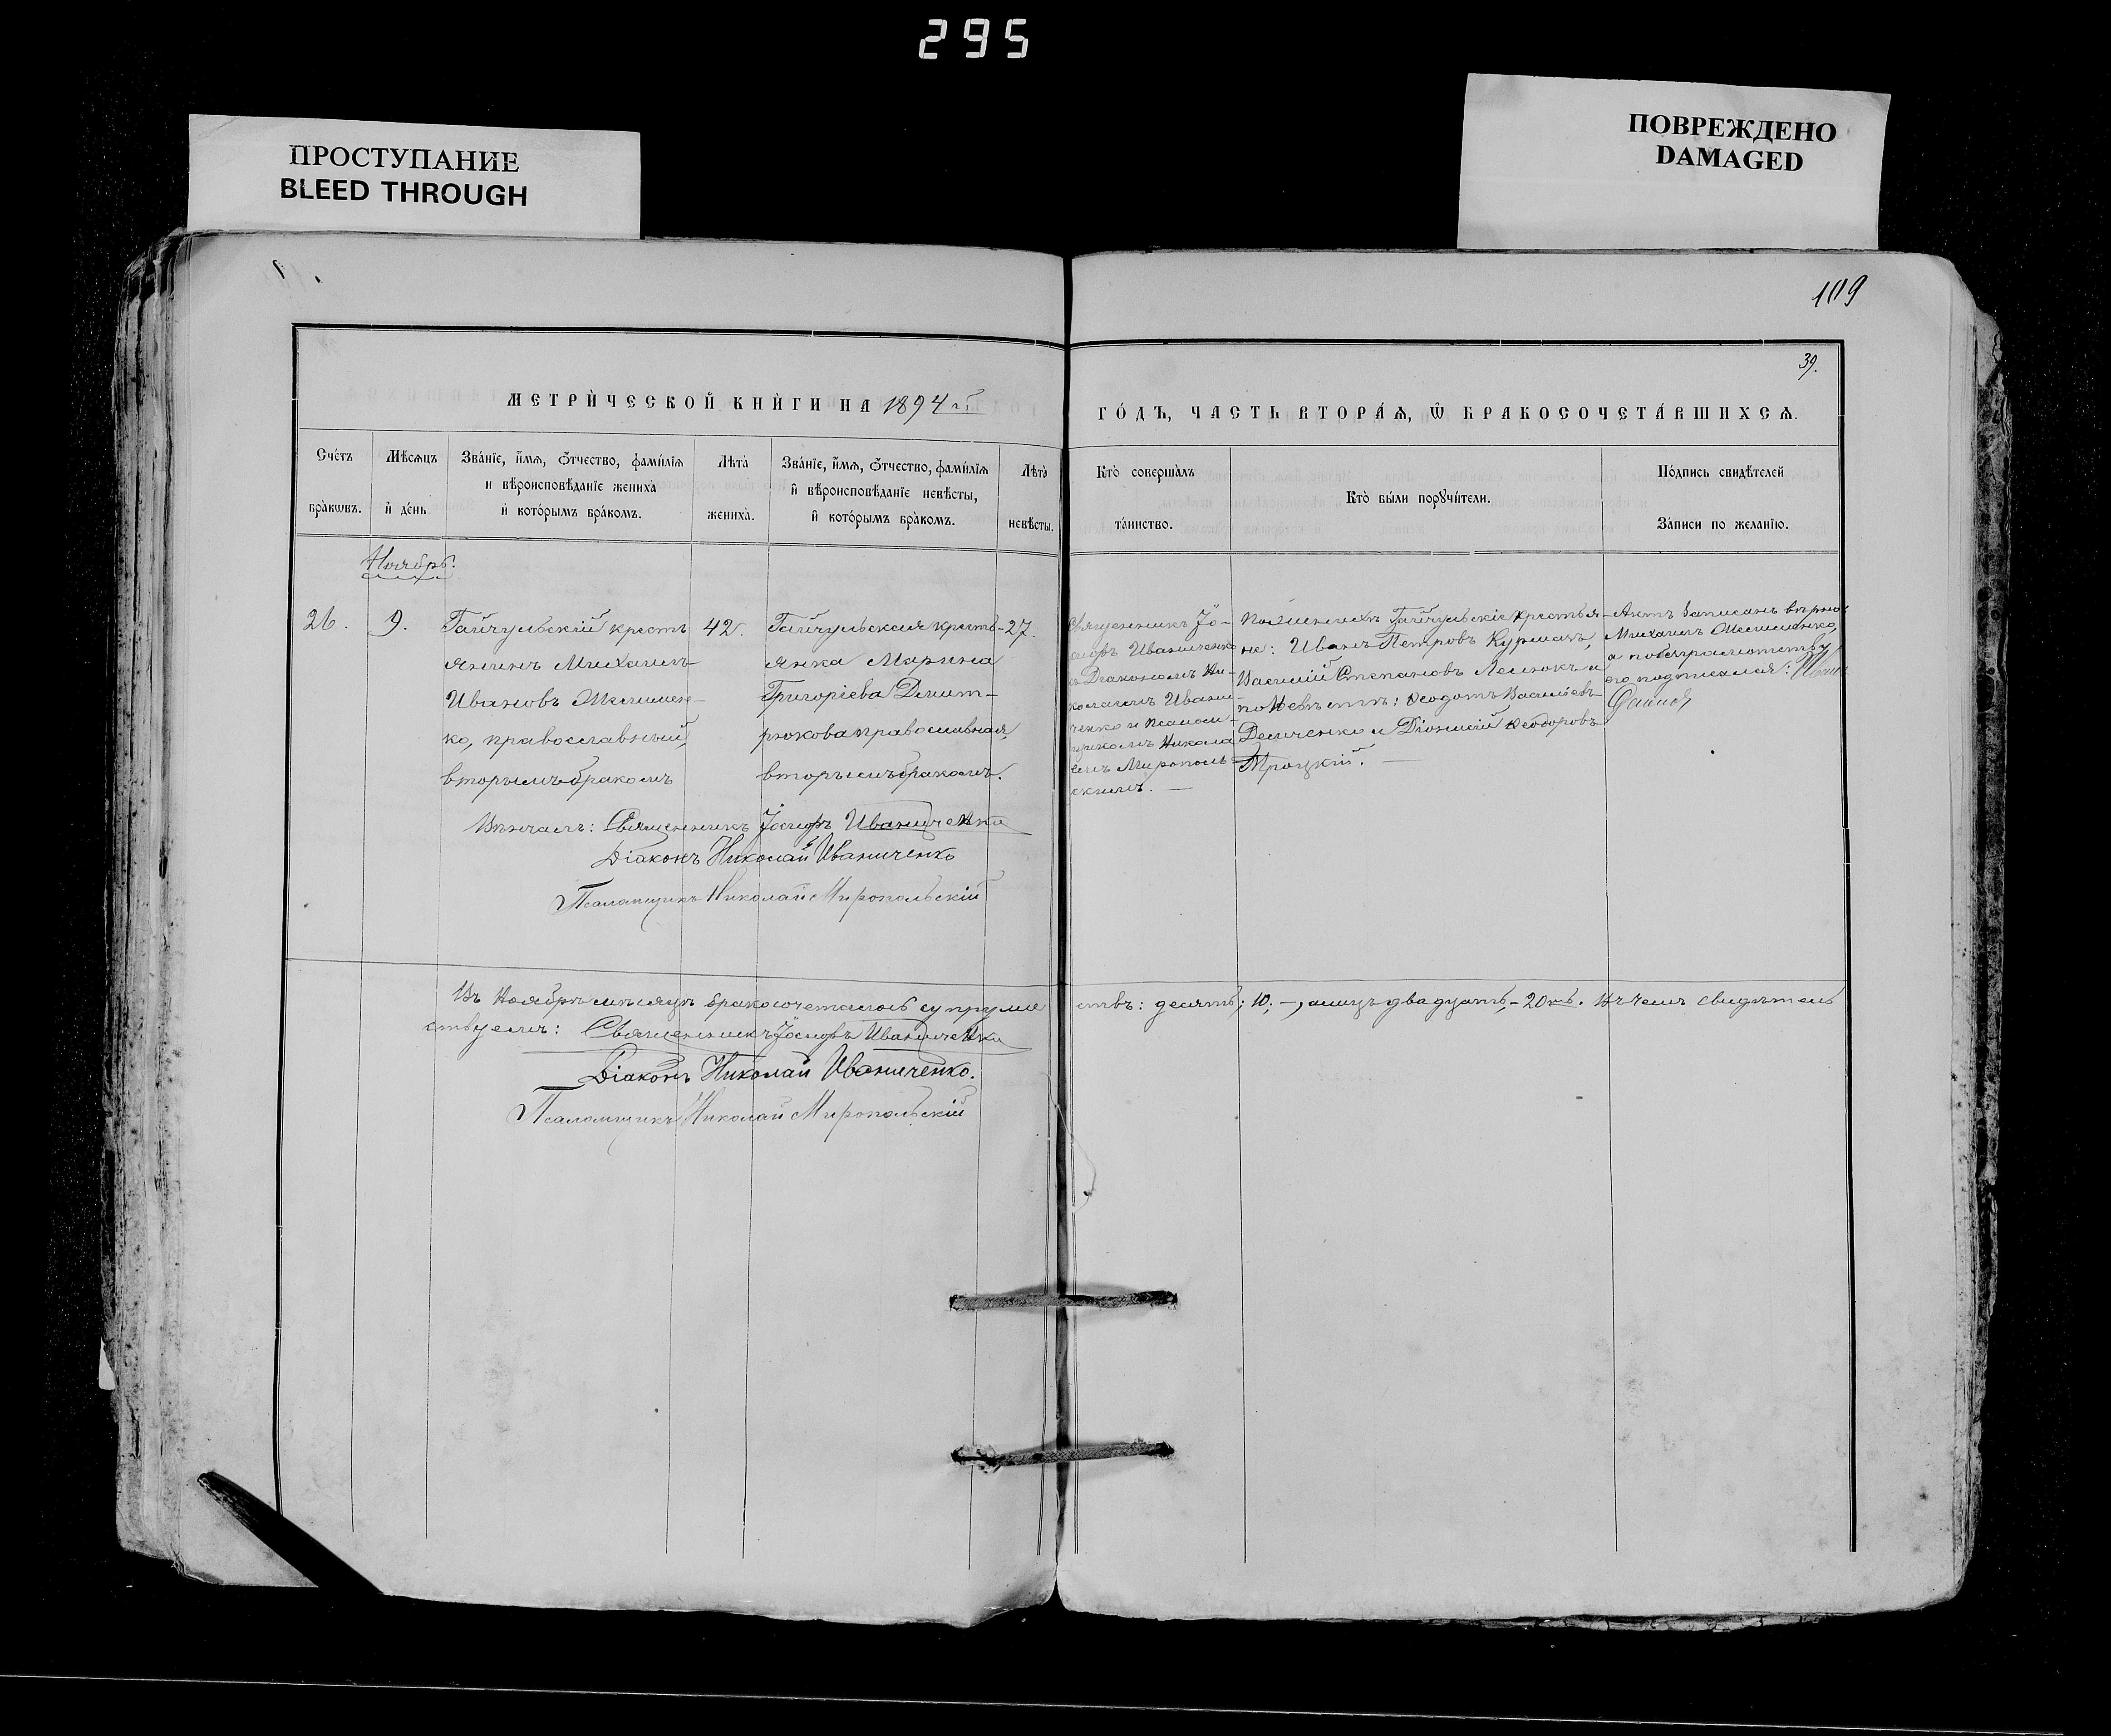 295
ПРОСТУПАНИЕ
BLEED THROUGH
ПОВРЕЖДЕНО
DAMAGED
109
39.
МЕТРИ́ЧЕСКОЙ КНИ́ГИ НА 1894 й
ГО́ДЪ, ЧАСТЬ ВТОРА́Ѧ, Ѡ҆ БРАКОСОЧЕТА́ВШИХСѦ.
Сче́тъ
бра́кѡвъ.
Мѣсяцъ
и҆ де́нь
Зва́нїе, и҆́мѧ, ѻ҆́тчество, фами́лїѧ
и вѣроисповѣ́данїе жениха̀
и҆ кото́рымъ бра́комъ.
Лѣта̀
жениха̀.
Зва́нїе, и҆́мѧ, ѻ҆́тчество, фами́лїѧ
и҆ вѣроисповѣ́данїе невѣ́сты,
и҆ кото́рымъ бра́комъ.
Лѣта̀
невѣ́сты.
Кто̀ соверша́лъ
та́инство.
Кто̀ бы́ли порꙋчи́тели.
По́дпись свидѣ́телей
За́писи по жела́нїю.
Ноябрь.
26.
9.
Гайчульскій кресть
янинъ Михаилъ
Ивановъ
ко, православный,
вторымъ бракомъ
42.
Гайчульская кресть-
янка Марина
Григоріева Дмит-
рюкова православная,
вторымъ бракомъ.
27.
Священникъ Іо-
сифъ Иваниченко
съ Діакономъ Ни-
колаемъ Ивани
ченко и псалом-
щикомъ Никола
емъ Миропольс-
скимъ. —
по женихѣ Гайчульскіе крестья-
не: Иванъ Петровъ Курманъ,
Василій Степановъ и
по невѣстѣ: Ѳеодотъ Васильевъ
Демченко и Діонисій Ѳеодоровъ
Троцкій. —
Актъ записанъ вѣрно
Михаилъ
а по безграмотству
его подписался: Иванъ
Вѣнчалъ: Священникъ Іосифъ Иваниченко
Діаконъ Николай Иваниченко
Псаломщикъ Николай Миропольскій
Въ Ноябрѣ мѣсяцѣ бракосочеталось супруже
ствъ: десять; 10. –, лицъ двадцать, – 20ть. Въ чемъ свидѣтель
ствуемъ: Священникъ Іосифъ Иваниченко
Діаконъ Николай Иваниченко.
Псаломщикъ Николай Миропольскій